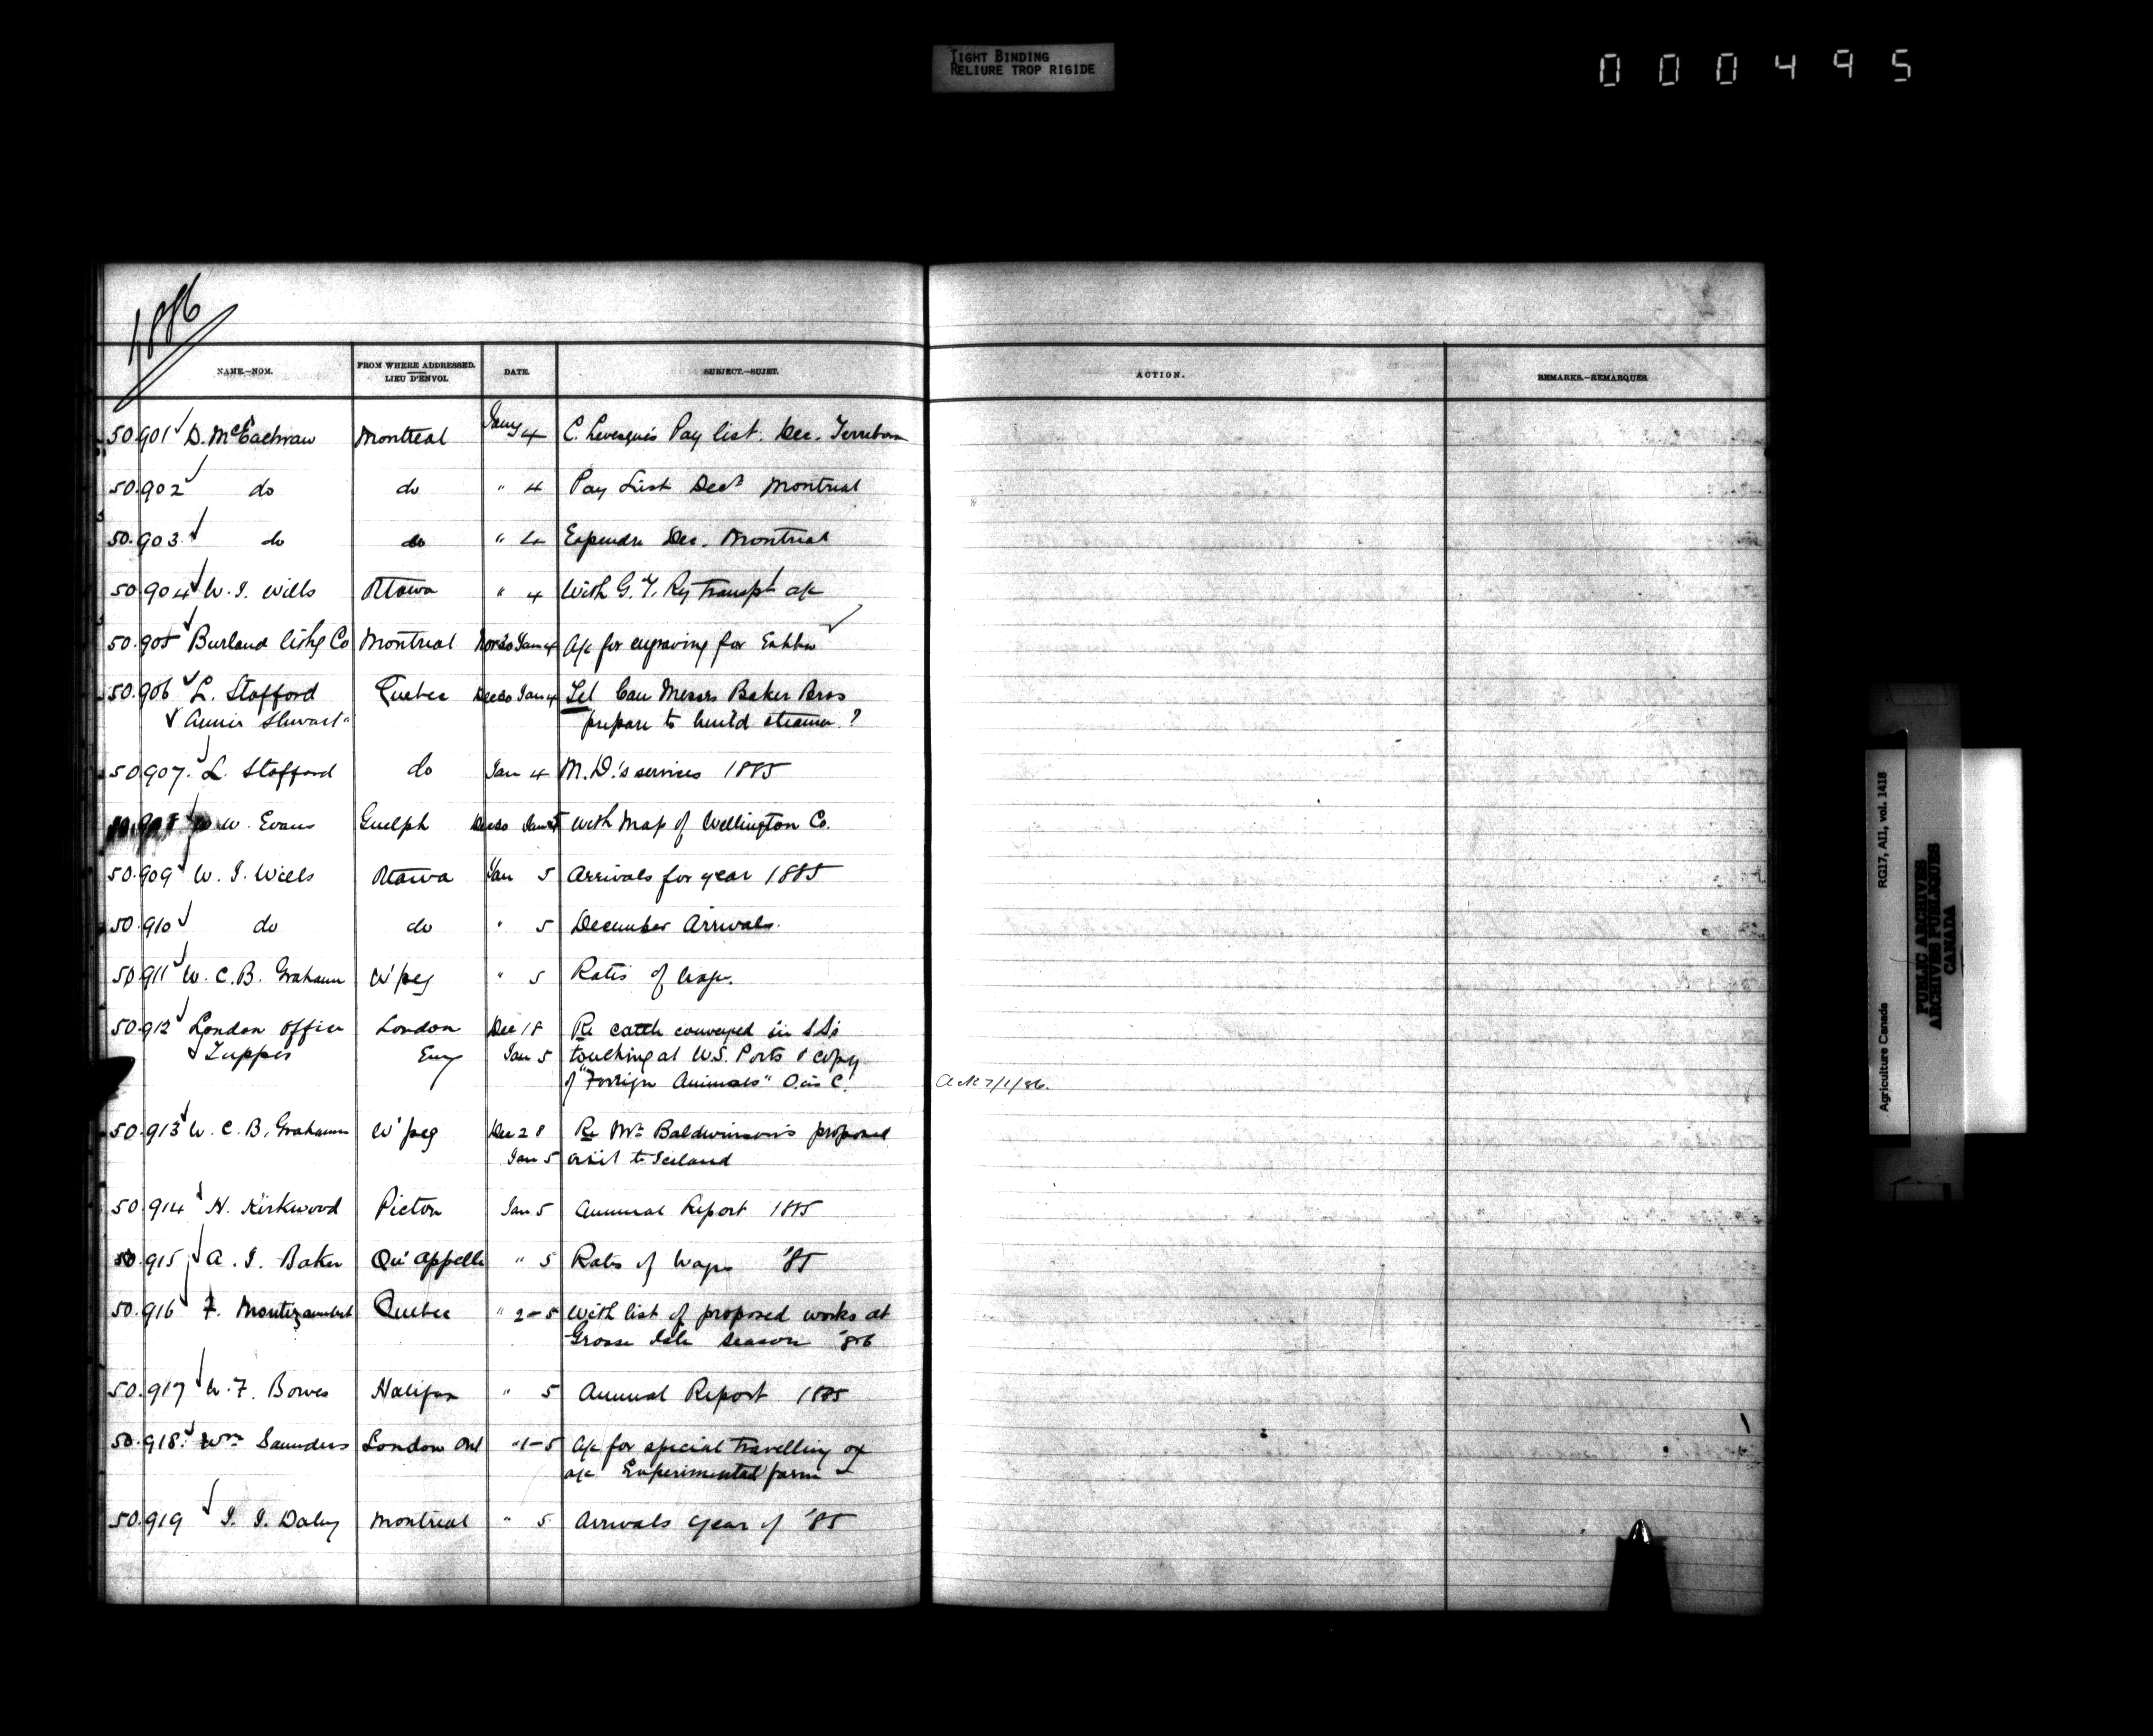 TIGHT BINDING
RELIURE TROP RIGIDE
000495
1886
NAME.—NOM.
FROM WHERE ADDRESSED.
LIEU D'ENVOI.
DATE.
SUBJECT.—SUJET.
ACTION.
REMARKS.—REMARQUES
50.901 D. McEachran Montreal Jany 4 C. Levesque's Pay list. Dec. Terrebon
50.902 do do " 4 Pay List Decr Montreal
50.903 do do " 4 Expendre Dec. Montreal
50.904 W. J. Wills Ottawa " 4 With G. T. Ry Transpt a/c
50.905 Burland Lithg Co Montreal Nov 30 Jan 4 A/c for engraving for
50.906 L. Stafford Quebec Dec 30 Jan 4 Tel Can Messrs Baker Bros
& Annie Stewart prepare to build steamer?
50.907. L. Stafford do Jan 4 M.D.'s services 1885
W. Evans Guelph Dec 30 Jan 5 with Map of Wellington Co.
50.909 W. J. Wills Ottawa Jan 5 Arrivals for year 1885
50.910 do do " 5 December Arrivals.
50.911 W. C. B. Grahame W'peg " 5 Rates of Wage.
50.912 London Office London Dec 18 Re cattle conveyed in SS's
& Tupper Eng Jan 5 touching at U.S. Ports & copy
of "Foreign Animals" O. in C. Ack 7/1/86.
50.913 W. C. B. Grahame W'peg Dec 28 Re Mr Baldwinson's proposed
Jan 5 visit to Iceland
50.914 H. Kirkwood Picton Jan 5 Annual Report 1885
50.915 A. J. Baker Qu'appelle " 5 Rates of Wages '85
50.916 F. Montizambert Quebec " 2-5 With list of proposed works at
Grosse Isle season '86
50.917 W. F. Bowes Halifax " 5 Annual Report 1885
50.918. Wm Saunders London Ont "1-5 A/c for special travelling ex
a/c Experimental farm
50.919 J. J. Daley Montreal " 5 Arrivals year of '85
Agriculture Canada RG17, AI1, vol. 1418
PUBLIC ARCHIVES
ARCHIVES PUBLIQUES
CANADA